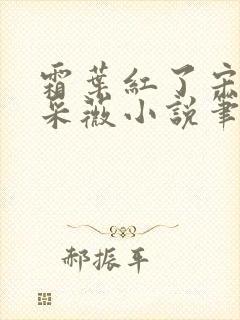 霜葉紅了宋
采薇小說筆
郝振平